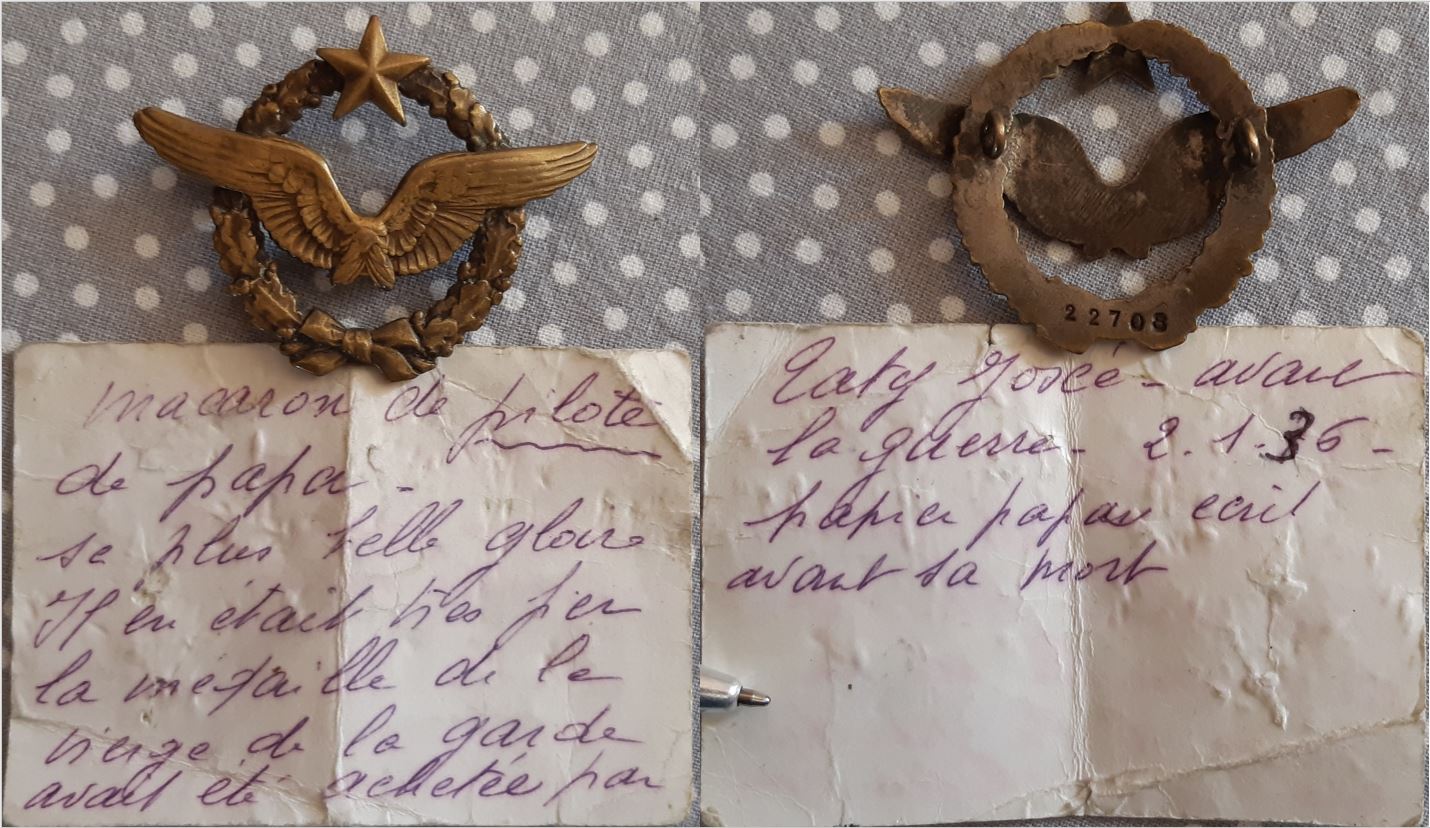 macaron de pilote
de papa -
sa plus belle gloire
Il en était très fier
la médaille de la
vierge de la garde
avait été achetée par
22708
Taty Josée - avant
la guerre - 2.1.36 -
papier papa écrit
avant sa mort